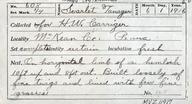 No. 608 Name Scarlet Tanager
Set 1/4 Date 6/1 1916
Collected by H.W. Carriger
Locality McKean Co. Penna
Set complete Identity certain Incubation fresh
On horizontal limb of a hemlock
18 ft up and 8 ft out. Built loosely of
fine twigs and lined with fine
grasses.
MVZ